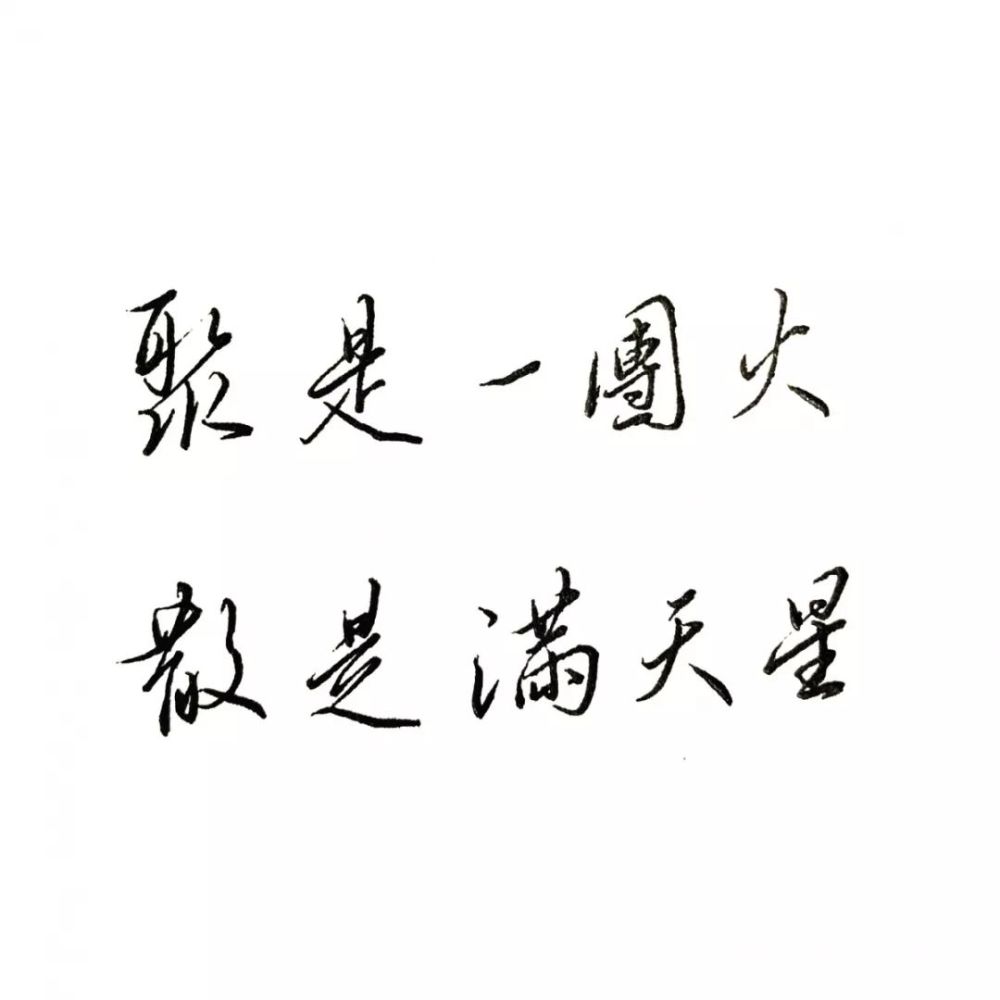 聚是一團火
散是滿天星